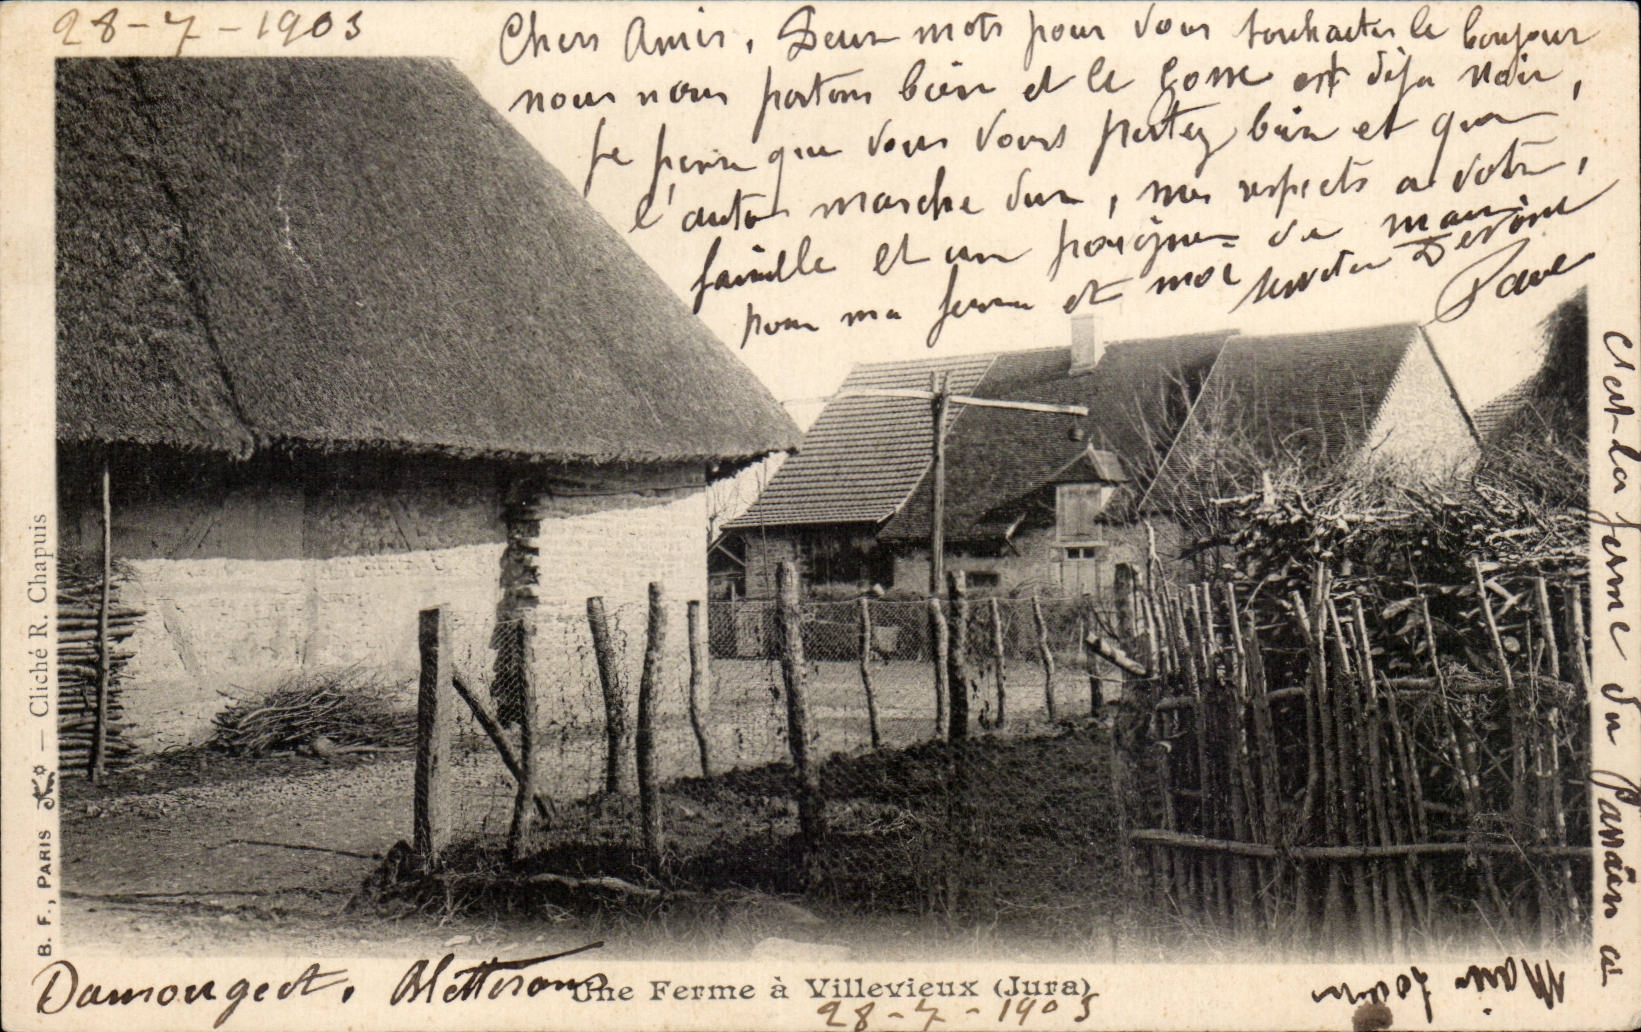 28-7-1903
Chers Amis, Deux mots pour vous souhaiter le bonjour
nous nous portons bien et le gosse est déjà noir,
je pense que vous vous portez bien et que
l'auto marche dur, mes respects a votre,
famille et un poignee de main
pour ma femme et moi serviteur
C'est la ferme du
B. F., PARIS — Cliché R. Chapuis
Une Ferme à Villevieux (Jura)
28-7-1903